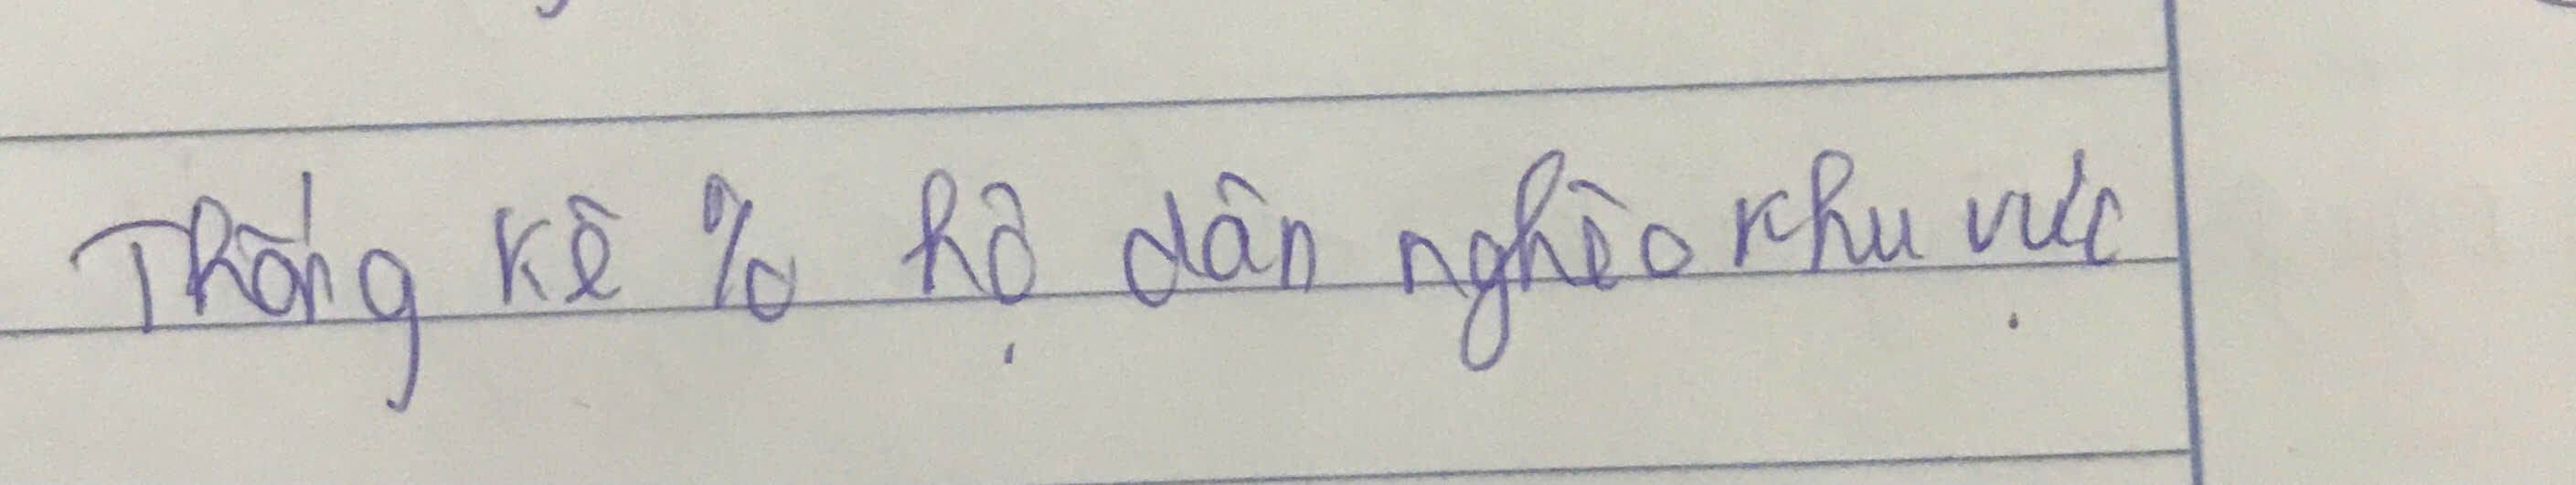 Thống kê % hộ dân nghèo khu vực